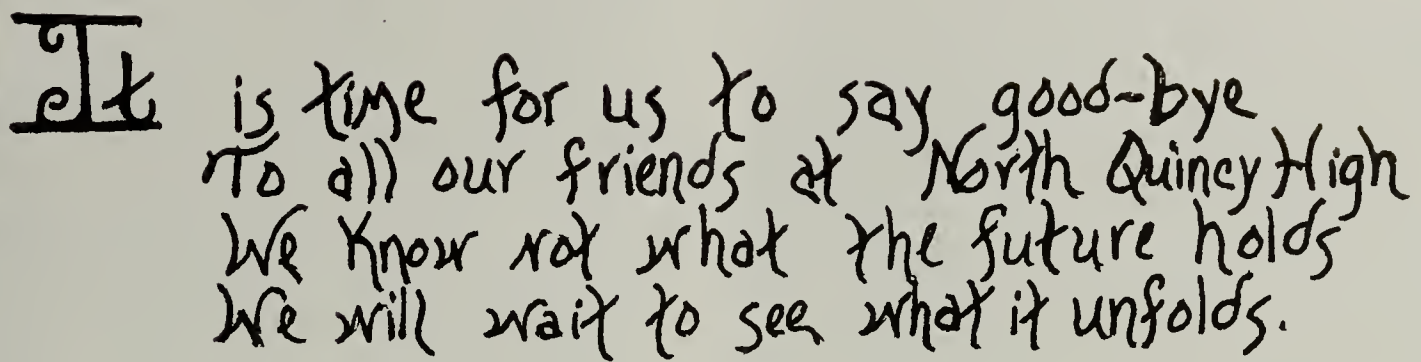 It is time for us to say good-bye
To all our friends at North Quincy High
We Know not what the future holds
We will wait to see what it unfolds.